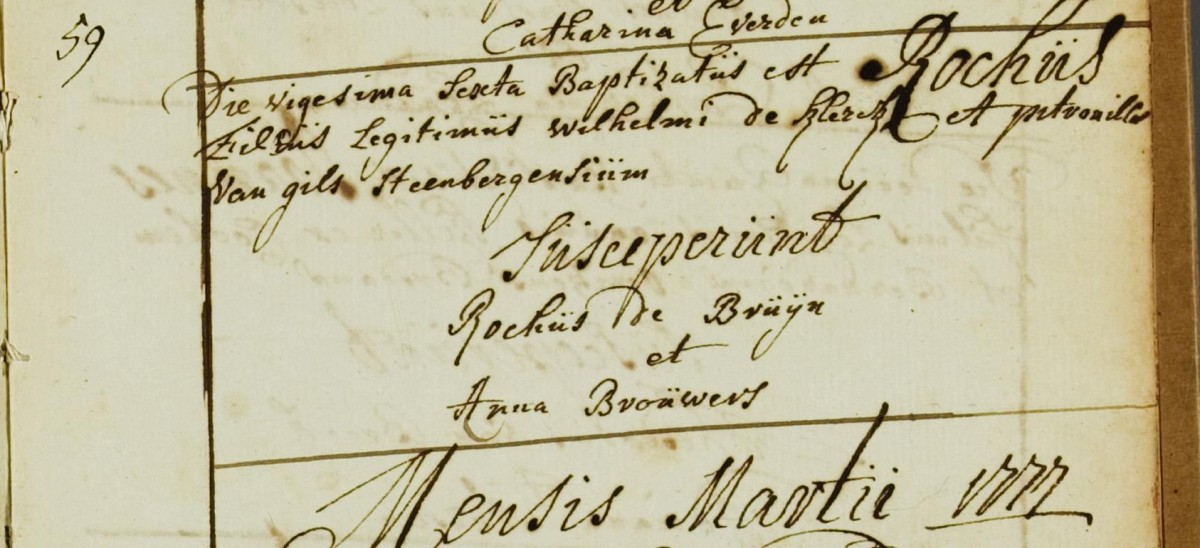 et
Catharina Everden
59
Die vigesima sexta Baptizatüs est Rochüs
Filiüs Legitimüs Wilhelmi de Klerck et petronillæ
Van gils Steenbergensiüm
Süsceperünt
Rochüs de Brüÿn
et
Anna Broüwers
Mensis Martii 1777